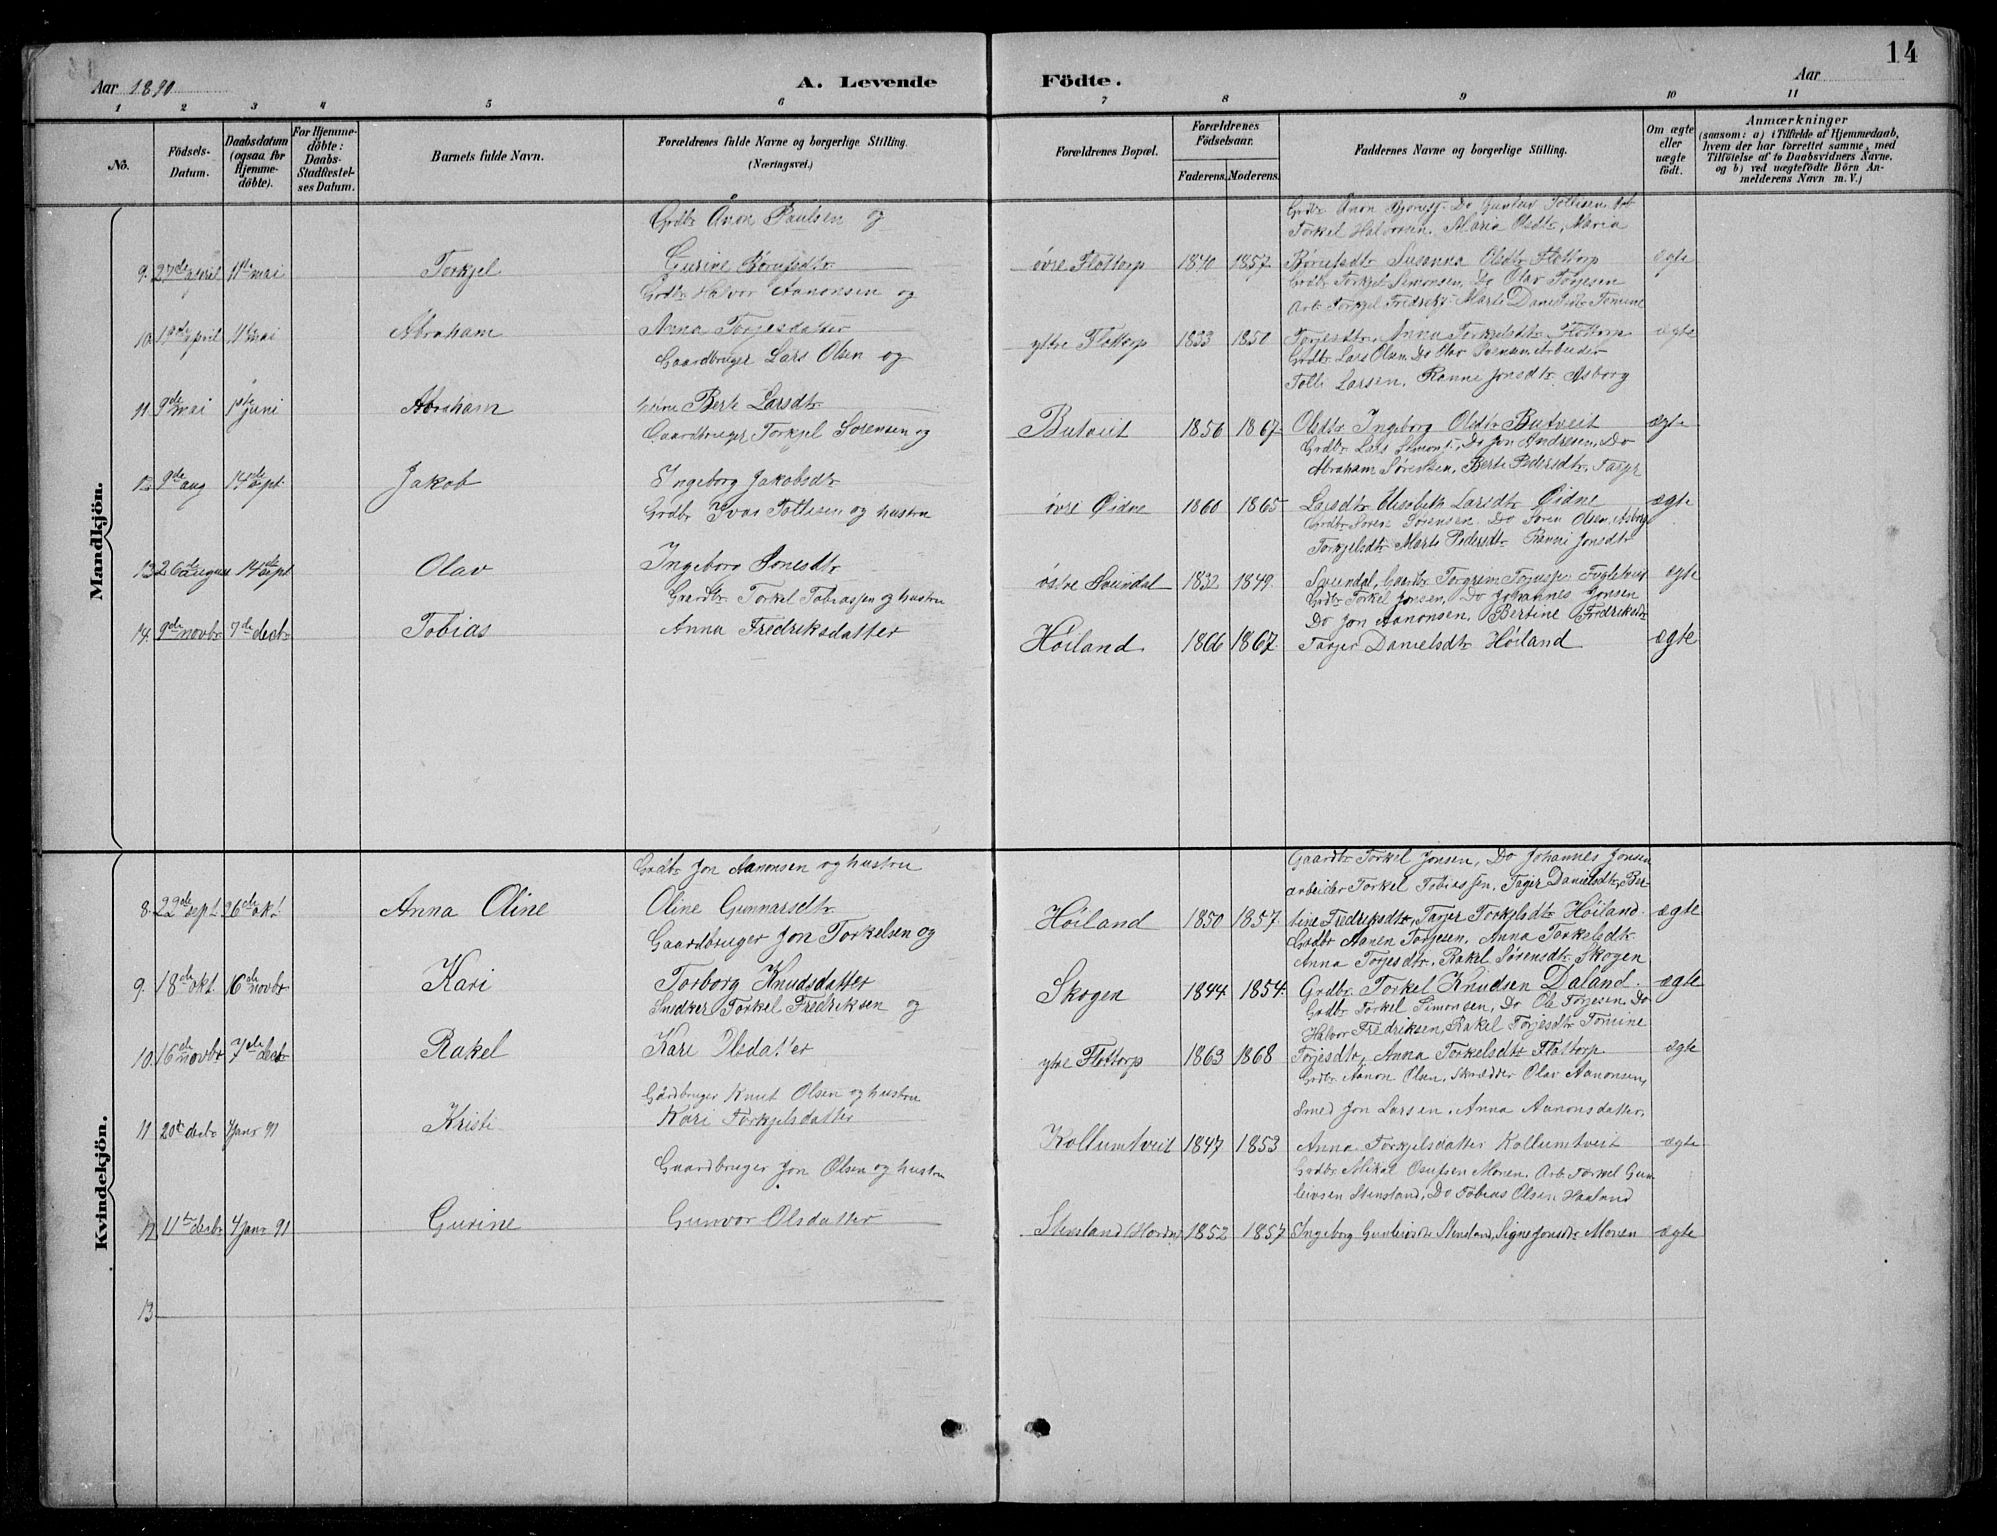 14
Aar 1890
A. Levende
Födte.
Aar
1 2 3 4 5 6 7 8 9 10 11
Nô.
Födsels-Datum.
Daabsdatum (ogsaa for Hjemme-döbte).
For Hjemme-döbte: Daabs-Stadfæstel-ses Datum.
Barnets fulde Navn.
Forældrenes fulde Navne og borgerlige Stilling. (Næringsvei.)
Forældrenes Bopæl.
Forældrenes Födselsaar.
Faderens. Moderens.
Faddernes Navne og borgerlige Stilling.
Om ægte eller uægte födt.
Anmærkninger
(saasom: a) i Tilfælde af Hjemmedaab, hvem der har forrettet samme, med Tilföielse af to Daabsvidners Navne, og b) ved uægtefödte Börn An-melderens Navn m. V.)
Mandkjön.
Grdbr Ånon Paulsen og
Grdbr Ånon Do Gunluv Tollisen
Torkel Halvorsen, Maria Olsdtr, Maria
9. 27de april 11te mai Torkjel Gurine øvre Flottorp 1840 1857 Susanna Olsdtr Flottorp ægte
Grdbr Halvor Aanonsen og
Grdbr Torkjel Simonsen, Do Olav Torjesen
Arb. Torkjel Fredriks. Marte Danielsdtr Tomine
10. april 11te mai Abraham Anna Torjesdatter ytre Flottorp 1833 1850 Torjesdtr, Anna Torkjelsdtr Flottorp ægte
Gaardbruger Lars Olsen og
Grdbr Lars Olsen, Do Olav Arbeider
Larsen, Ranne Jonsdtr, Asborg
11. 9de mai 1ste juni Abraham Berte Larsdtr Butveit 1856 1867 Olsdtr Ingeborg Olsdtr Butveit ægte
Gaardbruger Torkjel Sørensen og
Grdbr Lars Do Jon Andresen, Do
Abraham Sørensen, Berte Pedersdtr, Tarjer
12 9de aug 14de sept Jakob Ingeborg Jakobsdtr øvre Øidne 1860 1865 Larsdtr Elisabeth Larsdtr Øidne ægte
Grdbr Ivar Tollisen og hustru
Grdbr Soren Sørensen, Do Soren Olsen, Asborg
Torkjelsdtr Marte Pedersdtr Ranni Jonsdtr
13 26de august 14de sept Olav Ingeborg østre Svindal 1832 1849 Svindal, Gaardbr Torgrim ægte
Gaardbr Torkel Tobiassen og hustru
Grdbr Torkel Jonsen, Do Johannes Jonsen
Do Jon Aanonsen, Bertine Fredriksdtr
14. 9de novbr 7de decbr Tobias Anna Fredriksdatter Høiland 1866 1867 Tarjer Danielsdtr Høiland ægte
Kvindekjön.
Grdbr Jon Aanonsen og hustru
Gaardbr Torkel Jonsen, Do Johannes Jonsen
arbeider Torkel Tobiassen, Tarjer Danielsdtr, Ber-
8. 22de sept 26de okt Anna Oline Oline Gunnarsdtr Høiland 1850 1857 tine Fredriksdtr, Tarjer Torkelsdtr Høiland ægte
Gaardbruger Jon Torkelsen og
Grdbr Aanen Torjesen, Anna Torkelsdtr
Anna Torjesdtr, Rakel Sørensdtr Skogen
9. 18de okt. 16de novbr Kari Torborg Knudsdatter Skogen 1844 1854 Grdbr Torkel Knudsen Daland ægte
Snedker Torkel Fredriksen og
Grdbr Torkel Simonsen, Do Ole Torjesen, Do
Halvor Fredriksen, Rakel Torjesdtr Tomine
10. 16de novbr 7de decbr Rakel Kari Olsdatter ytre Flottorp 1863 1868 Torjesdtr, Anna Torkelsdtr Flottorp ægte
Gårdbruger Knut Olsen og hustru
Grdbr Aanon Olsen, Skrædder Olav Aanonsen,
Smed Jon Larsen, Anna Aanonsdatter,
11 20de decbr 4 janr 91 Kristi Kari Torkjelsdatter Kollumtveit 1847 1853 Anna Torkjelsdatter Kollumtveit ægte
Gaardbruger Jon Olsen og hustru
Grdbr Mikal Osufsen Monen, Arb. Torkel Gun-
leivsen Stensland, Do Tobias Olsen Haaland
12 11te decbr 4 janr 91 Gurine Gunvor Olsdatter Stensland 1852 1857 Ingeborg Gunleivsdtr Stensland, Signe Jonsdtr Monen ægte
13